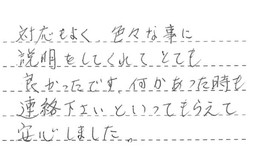 対応もよく 色々な事に
説明をしてくれて とても
良かったです。何かあった時も
連絡下さい といってもらえて
安心しました。